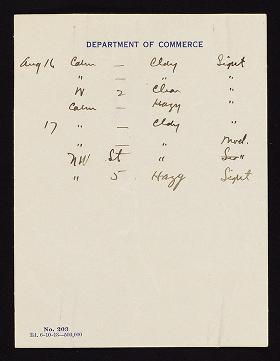 DEPARTMENT OF COMMERCE
Aug 16 Calm — Cldy Light
" — " "
W 2 Clear "
Calm — Hazy "
17 " — Cldy "
" — " Mod.
NW St "
" 5 Hazy Light
No. 203
Ed. 6-10-18—500,000